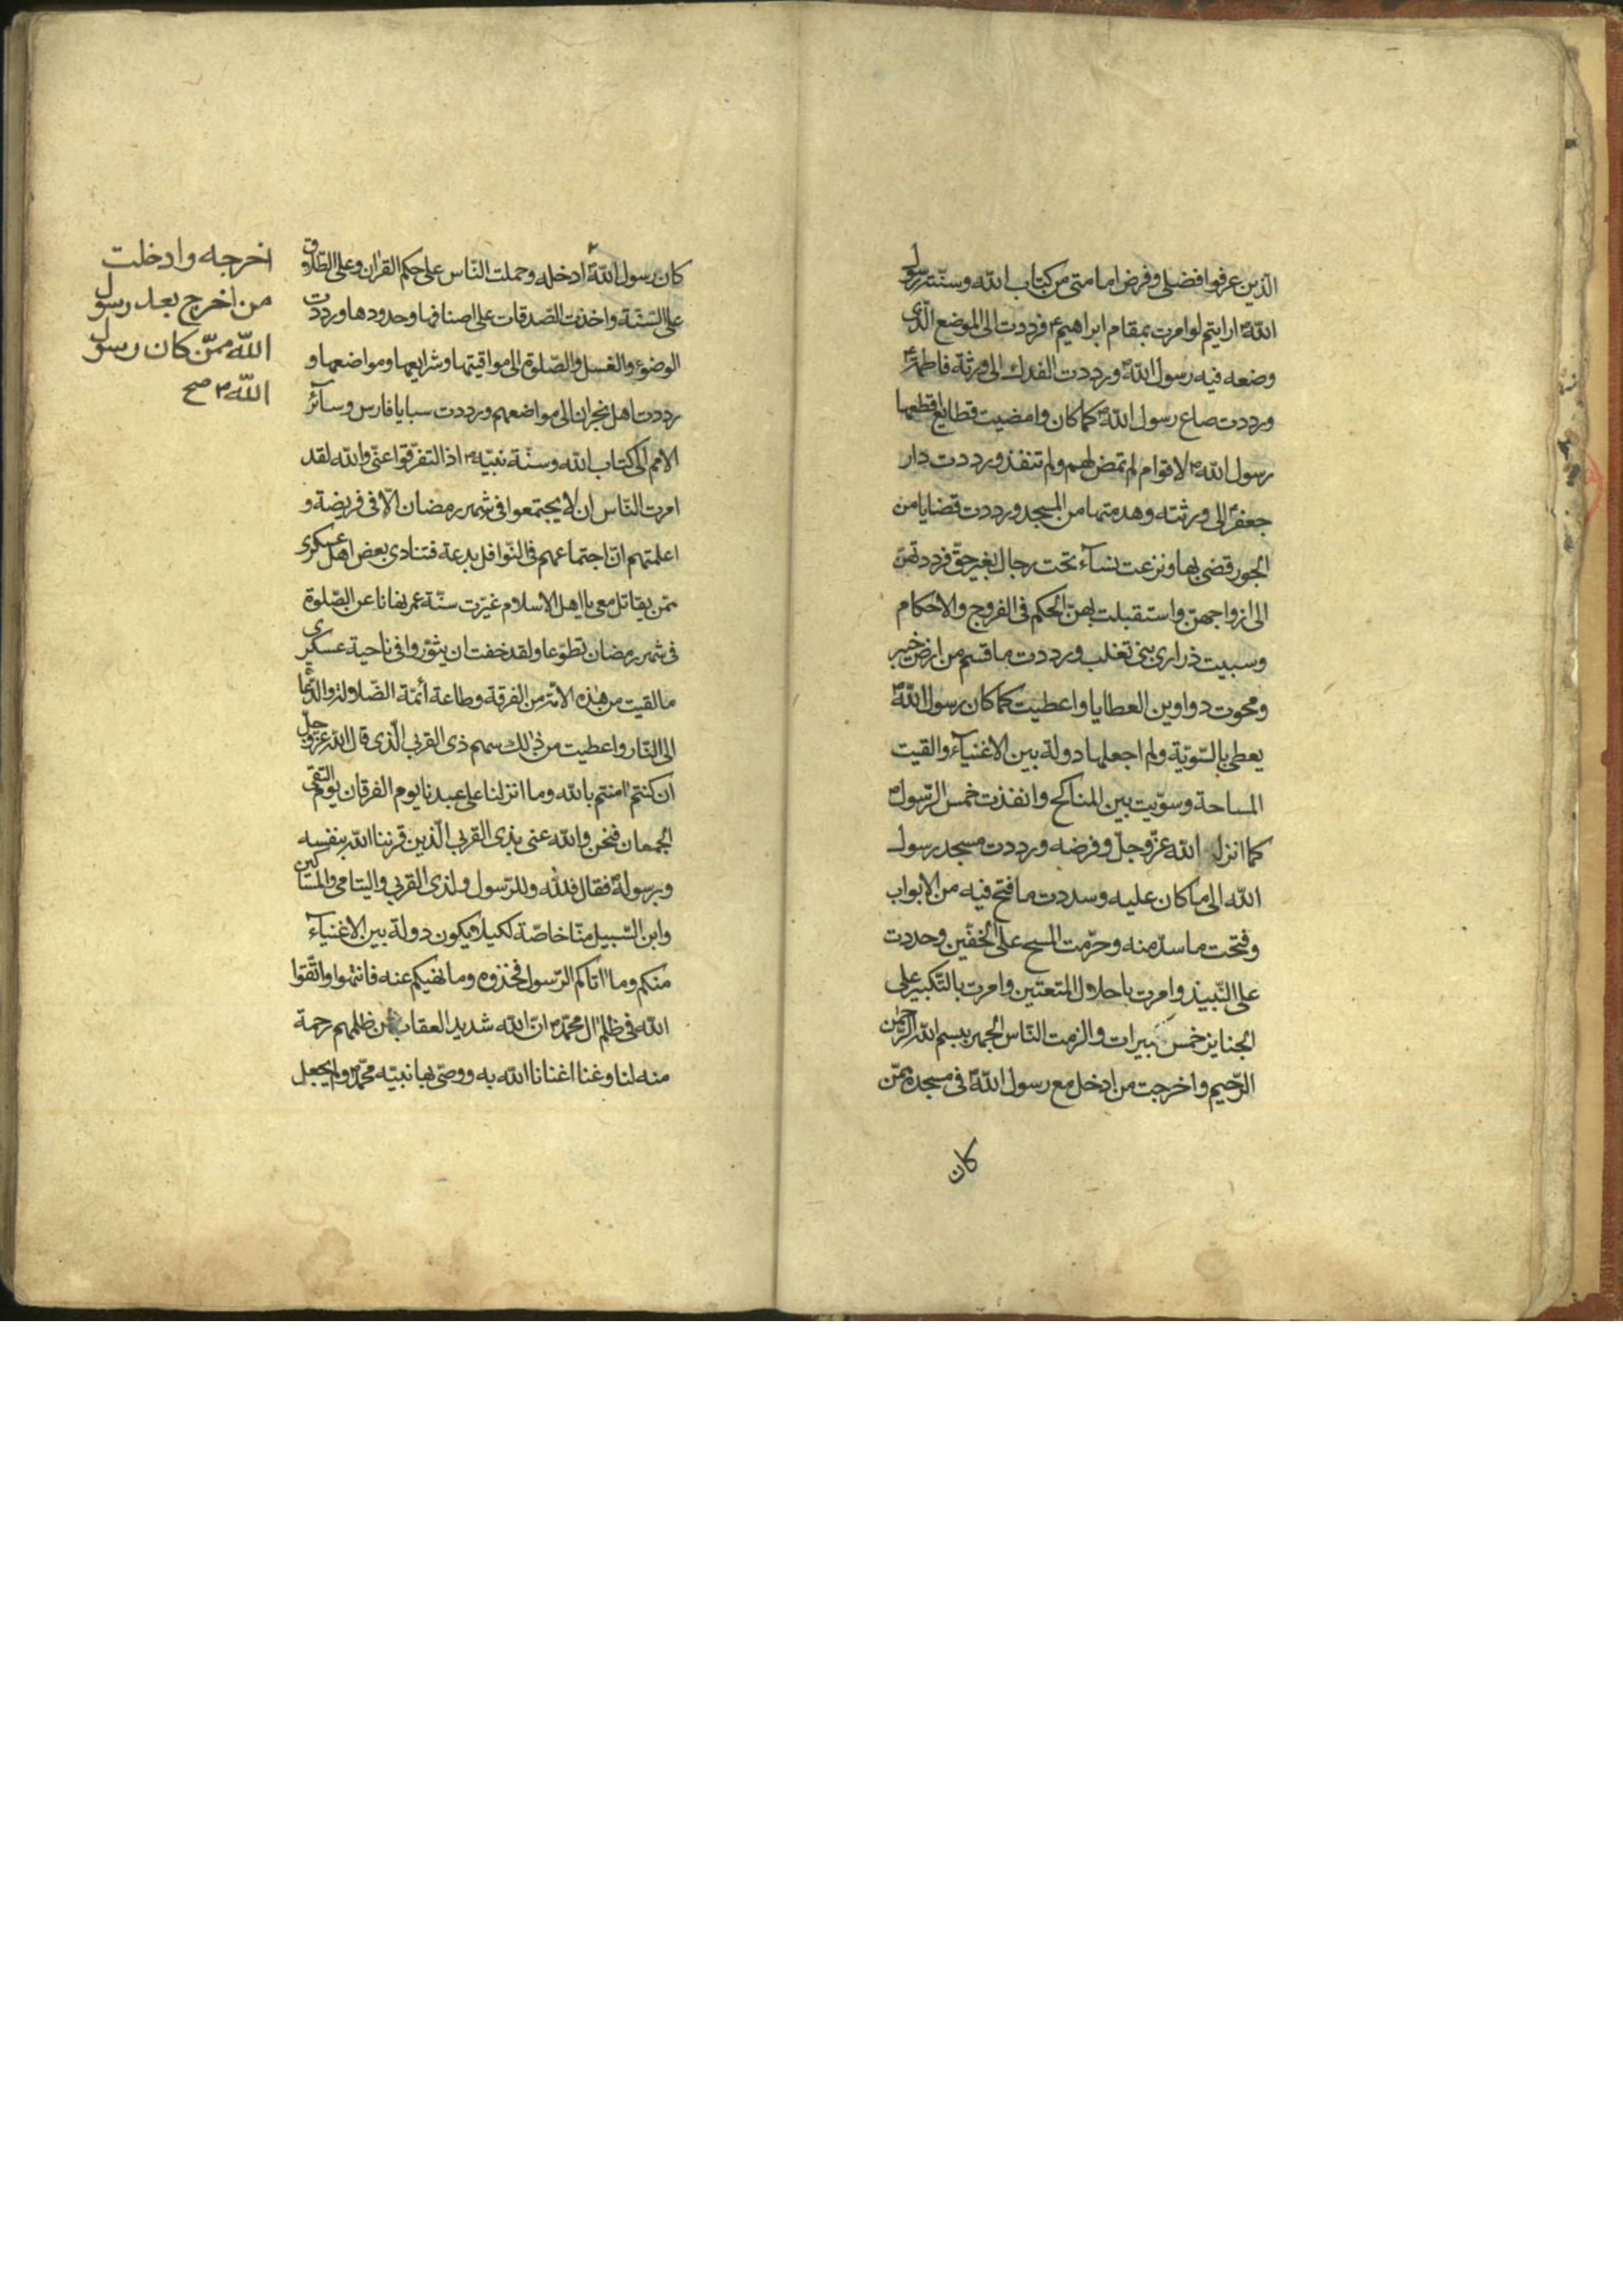 الذين عرفوا فضيلى وفرض امامتى من كتاب الله وسنّة رسول
الله ص ارايتم لو امرت بمقام ابراهيم ع فرددت الى الموضع الّذى
وضعه فيه رسول الله ص ورددت الفدك الى ورثة فاطمة ع
ورددت صاع رسول الله ص كما كان وامضيت قطايع اقطعها
رسول الله ص لاقوام لم تمض لهم ولم تنفذ ورددت دار
جعفر الى ورثته وهدمتها من المسجد ورددت قضايا من
الجور قضى بها ونزعت نسآء تحت رجال بغير حقّ فرددتهنّ
الى ازواجهنّ واستقبلت بهنّ الحكم فى الفروج والاحكام
وسبيت ذرارى بنى تغلب ورددت ما قسم من ارض خيبر
ومحوت دواوين العطايا واعطيت كما كان رسول الله ص
يعطى بالسّويّة ولم اجعلها دولة بين الاغنيآء والقيت
المساحة وسوّيت بين المناكح وانفذت خمس الرّسول ص
كما انزل الله عزّوجلّ وفرضه ورددت مسجد رسول
الله الى ما كان عليه وسددت ما فتح فيه من الابواب
وفتحت ما سدّ منه وحرّمت المسح على الخفّين وحددت
على النّبيذ وامرت باحلال المتعتين وامرت بالتّكبير على
الجنايز خمس تكبيرات والزمت النّاس الجهر ببسم الله الرّحمن
الرّحيم واخرجت من ادخل مع رسول الله ص فى مسجده ممّن
كان
كان رسول الله ص ادخله وحملت النّاس على حكم القران وعلى الطّلاق
على السّنّة واخذت الصّدقات على اصنافها وحدودها ورددت
الوضوء والغسل والصّلوة الى مواقيتها وشرايعها ومواضعها و
رددت اهل نجران الى مواضعهم ورددت سبايا فارس وسآئر
الامم الى كتاب الله وسنّة نبيّه ص اذا لتفرّقوا عنّى والله لقد
امرت النّاس ان لا يجتمعوا فى شهر رمضان الّا فى فريضة و
اعلمتهم انّ اجتماعهم فى النّوافل بدعة فتنادى بعض اهل عسكرى
ممّن يقاتل معى يا اهل الاسلام غيّرت سنّة عمر نهانا عن الصّلوة
فى شهر رمضان تطوّعا ولقد خفت ان يثوروا فى ناحية عسكرى
ما لقيت من هذه الامّة من الفرقة وطاعة أئمّة الضّلالة والدّعاة
الى النّار واعطيت من ذلك سهم ذى القربى الّذى قال الله عزّوجلّ
ان كنتم امنتم بالله وما انزلنا على عبدنا يوم الفرقان يوم التقى
الجمعان فنحن والله عنى بذى القربى الّذين قرننا الله بنفسه
وبرسوله ص فقال فلله وللرّسول ولذى القربى واليتامى والمساكين
وابن السّبيل منّا خاصّة لكيلا يكون دولة بين الاغنيآء
منكم وما اتاكم الرّسول فخذوه وما نهيكم عنه فانتهوا واتّقوا
الله فى ظلم ال محمّد ص انّ الله شديد العقاب لمن ظلمهم رحمة
منه لنا وغنا اغنانا الله به ووصّى بها نبيّه محمّد ص ولم يجعل
اخرجه وادخلت
من اخرج بعد رسول
الله ممّن كان رسول
الله ص صح